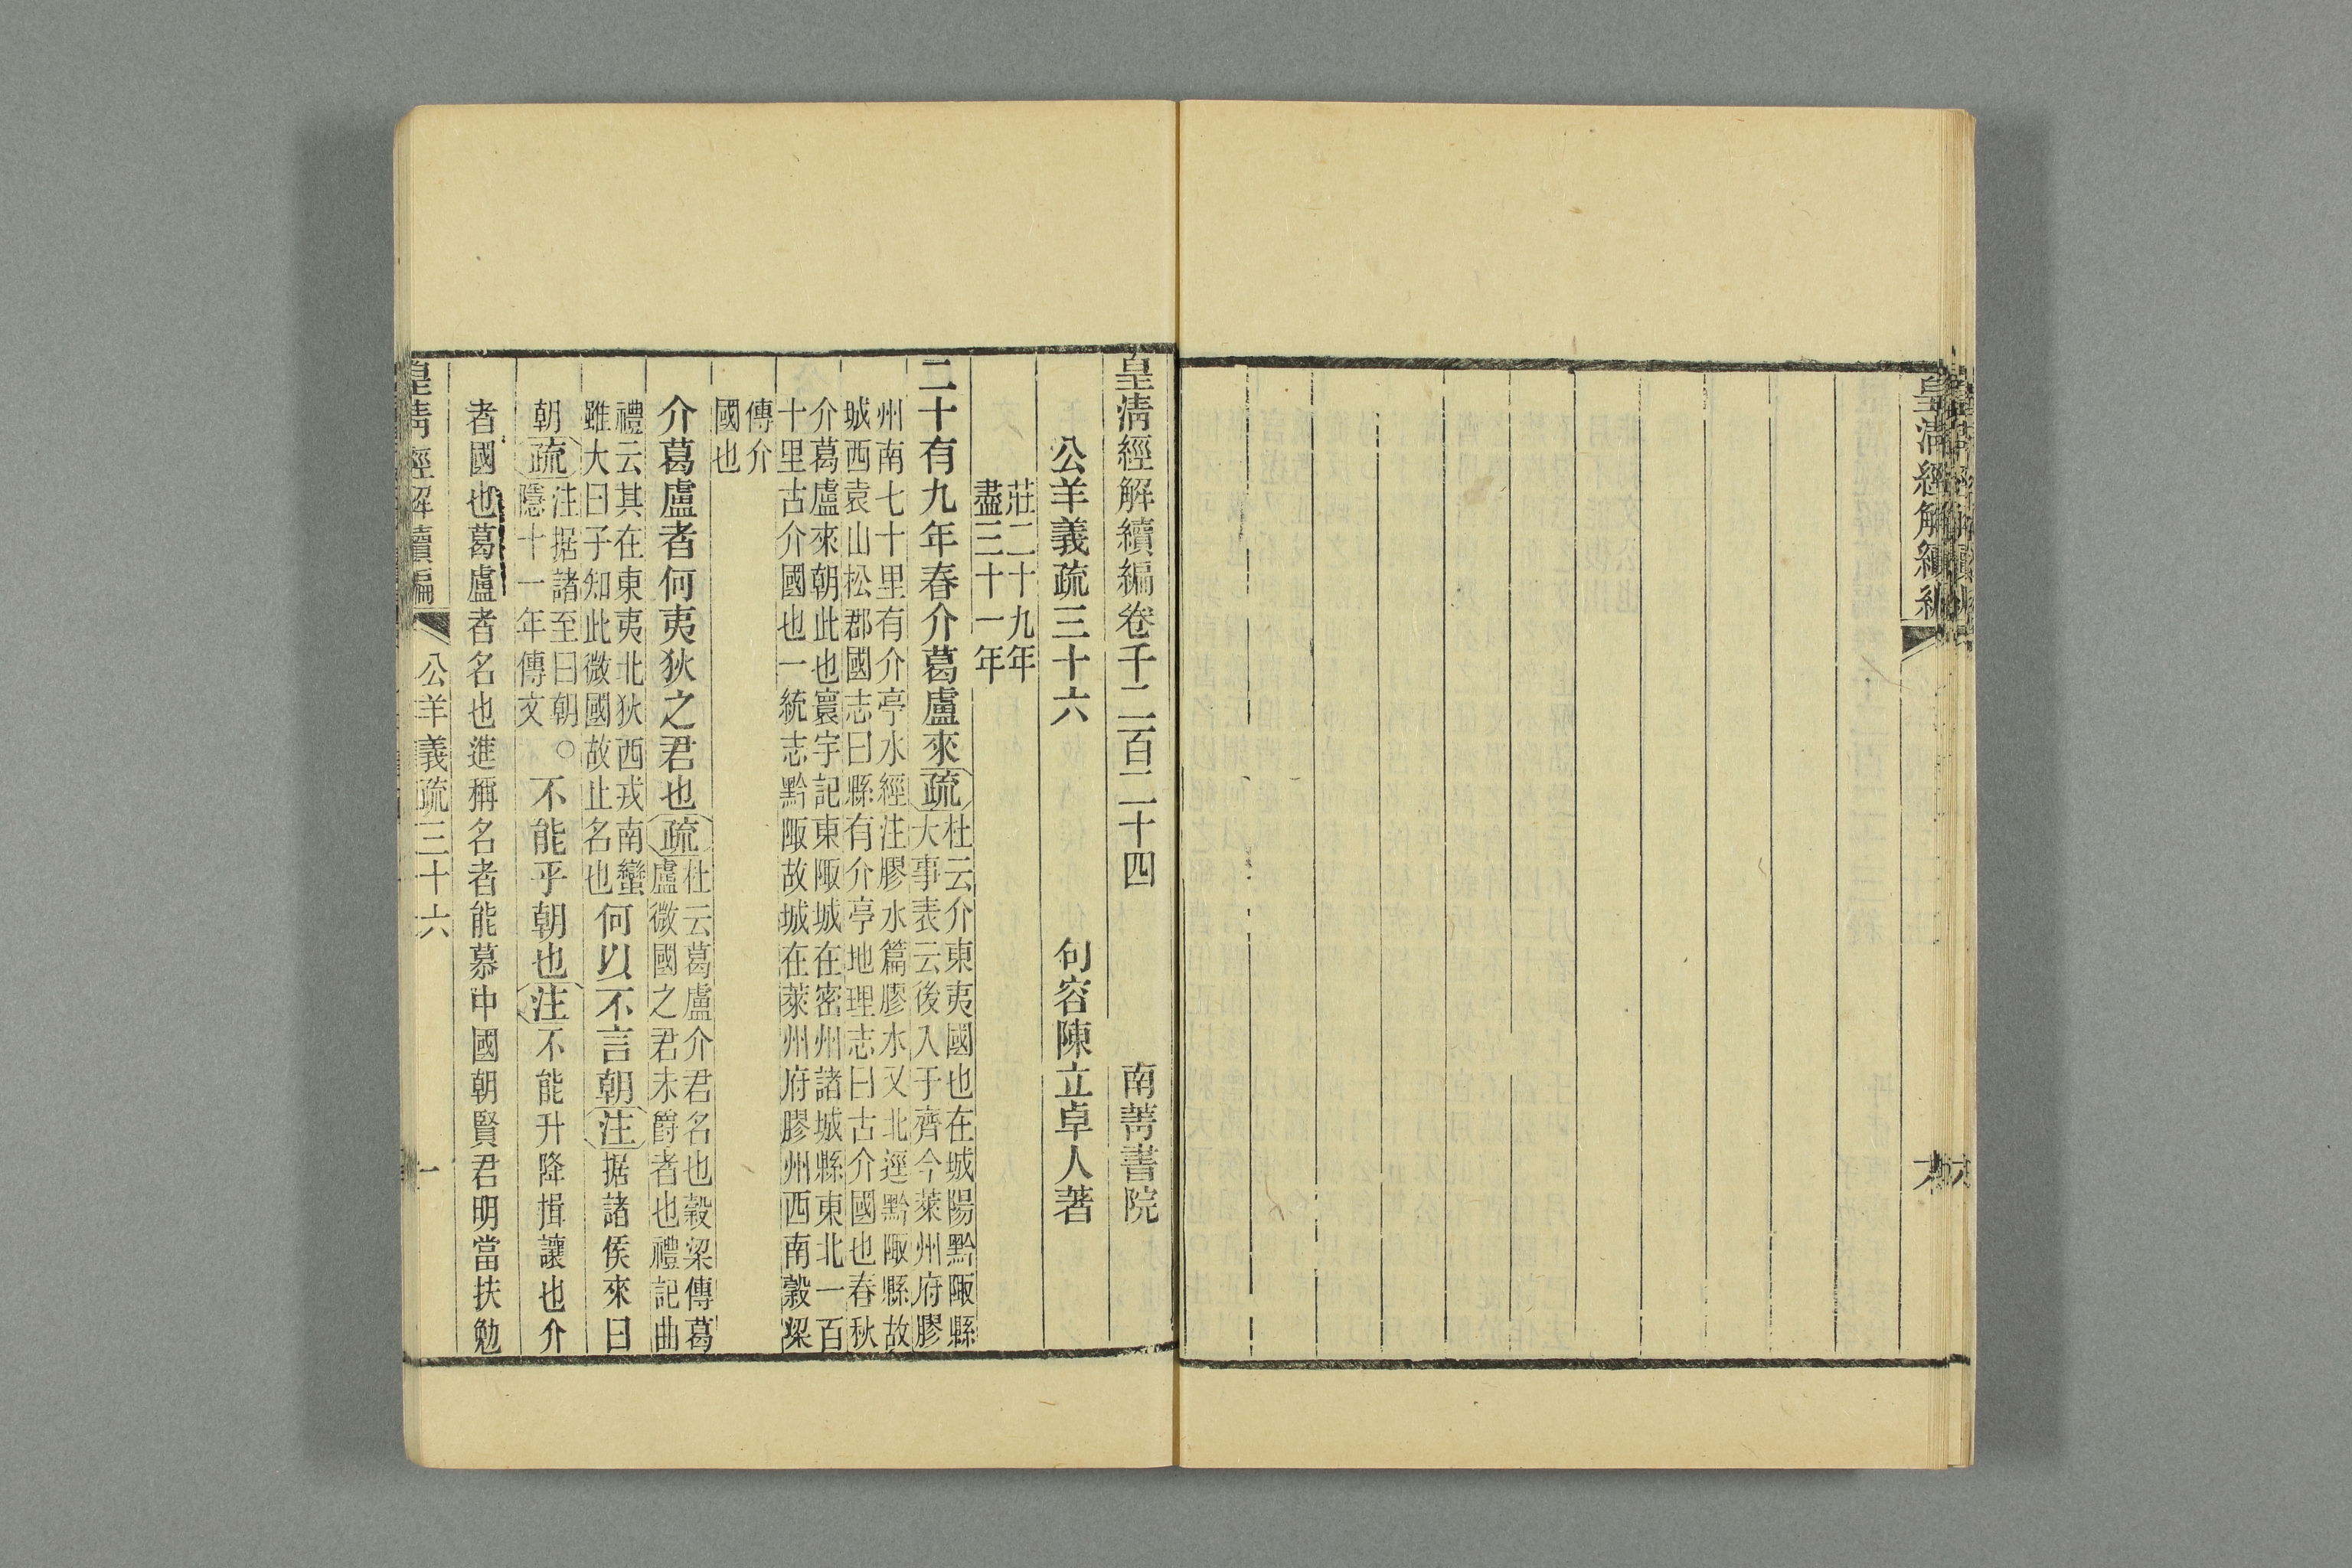 皇清經解續編
皇清經解續編卷千二百二十四 南菁書院
公羊義疏三十六 句容陳立卓人著
莊二十九年
盡三十一年
二十有九年春介葛盧來疏
杜云介東夷國也在城陽黔陬縣
大事表云後入于齊今萊州府膠
州南七十里有介亭水經注膠水篇膠水又北逕黔陬縣故
城西袁山松郡國志曰縣有介亭地理志曰古介國也春秋
介葛盧來朝此也寰宇記東陬城在密州諸城縣東北一百
十里古介國也一統志黔陬故城在萊州府膠州西南穀梁
傳介
國也
介葛盧者何夷狄之君也疏
杜云葛盧介君名也穀梁傳葛
盧微國之君未爵者也禮記曲
禮云其在東夷北狄西戎南蠻
雖大曰子知此微國故止名也
何以不言朝注據諸侯來曰
朝疏
注据諸至曰朝
隱十一年傳文
○不能乎朝也注不能升降揖讓也介
者國也葛盧者名也進稱名者能慕中國朝賢君明當扶勉
皇清經解續編 公羊義疏三十六 一